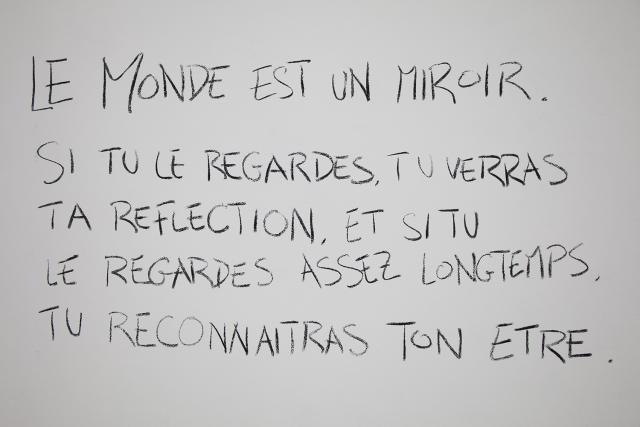 LE MONDE EST UN MIROIR.
SI TU LE REGARDES, TU VERRAS
TA REFLECTION, ET SI TU
LE REGARDES ASSEZ LONGTEMPS,
TU RECONNAITRAS TON ETRE.